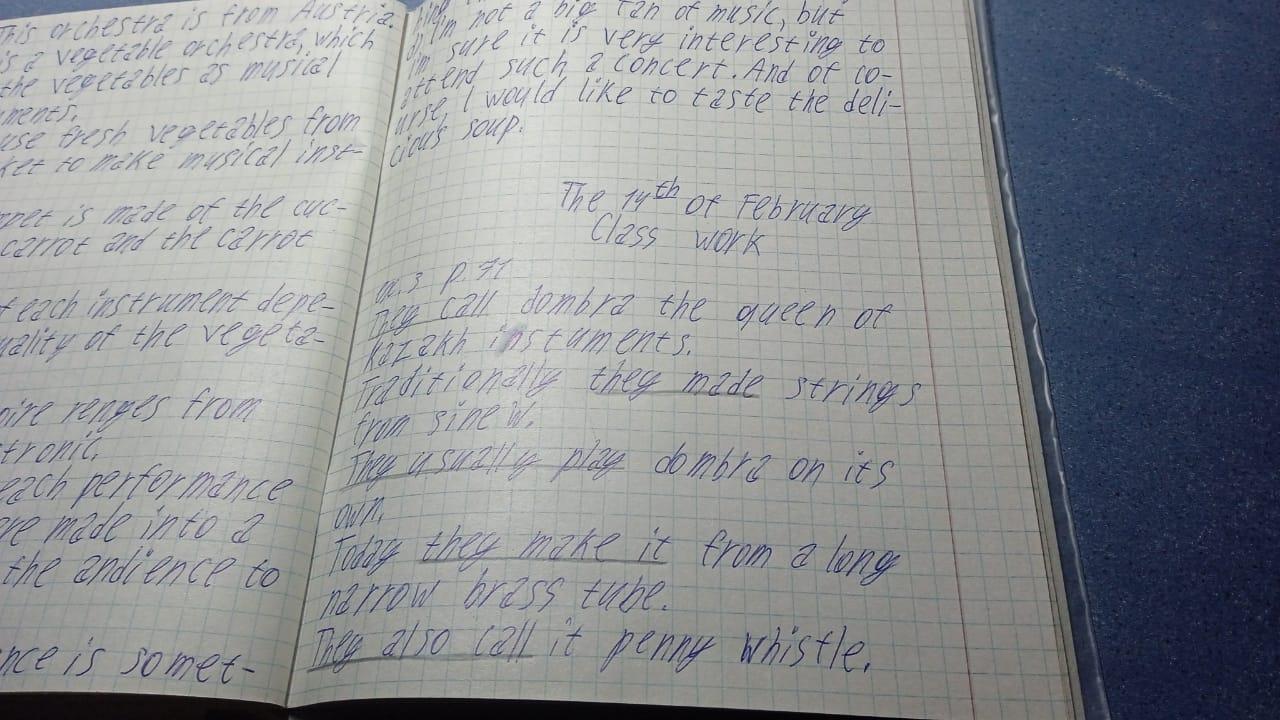 This orchestra is from Austria.
is a vegetable orchestra, which
the vegetables as musical
ments.
use fresh vegetables from
ket to make musical inst-
mpet is made of the cuc-
carrot and the carrot
f each instrument depe-
uality of the vegeta-
oire renges from
tronic.
each performance
are made into a
the andience to
nce is somet-
I'm not a big fan of music, but
I'm sure it is very interesting to
attend such a concert. And of co-
urse, I would like to taste the deli-
cious soup.
The 14th of February
Class work
ex. 3 p. 71
They call dombra the queen of
Kazakh instuments.
Traditionally they made strings
from sinew.
They usually play dombra on its
own.
Today they make it from a long
narrow brass tube.
They also call it penny whistle.